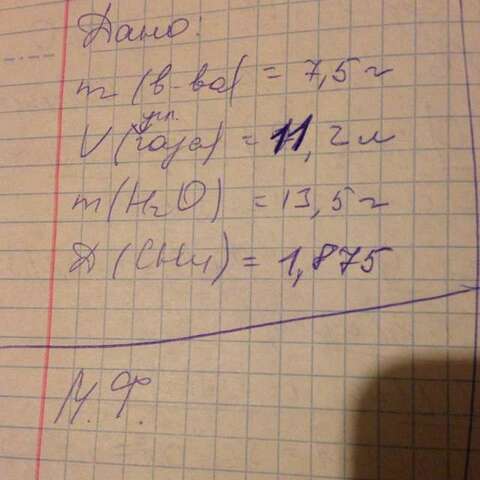 Дано:
m (в-ва) = 7,5 г
V (угл. газа) = 11,2 л
m (H₂O) = 13,5 г
D (CH₄) = 1,875
М.Ф.